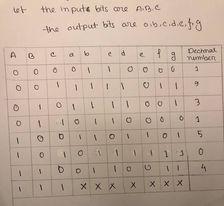 let the input bits are A,B,C
-the output bits are a,b,c,d,e,f,g
A B C a b c d e f g Decimal number
0 0 0 0 1 1 0 0 0 0 1
0 0 1 1 1 1 1 0 1 1 9
0 1 0 1 1 1 1 0 0 1 3
0 1 1 0 1 1 0 0 0 0 1
1 0 0 1 0 1 1 0 1 1 5
1 0 1
1 1 0 0 1 1 0 0 1 1 4
1 1 1 X X X X X X X